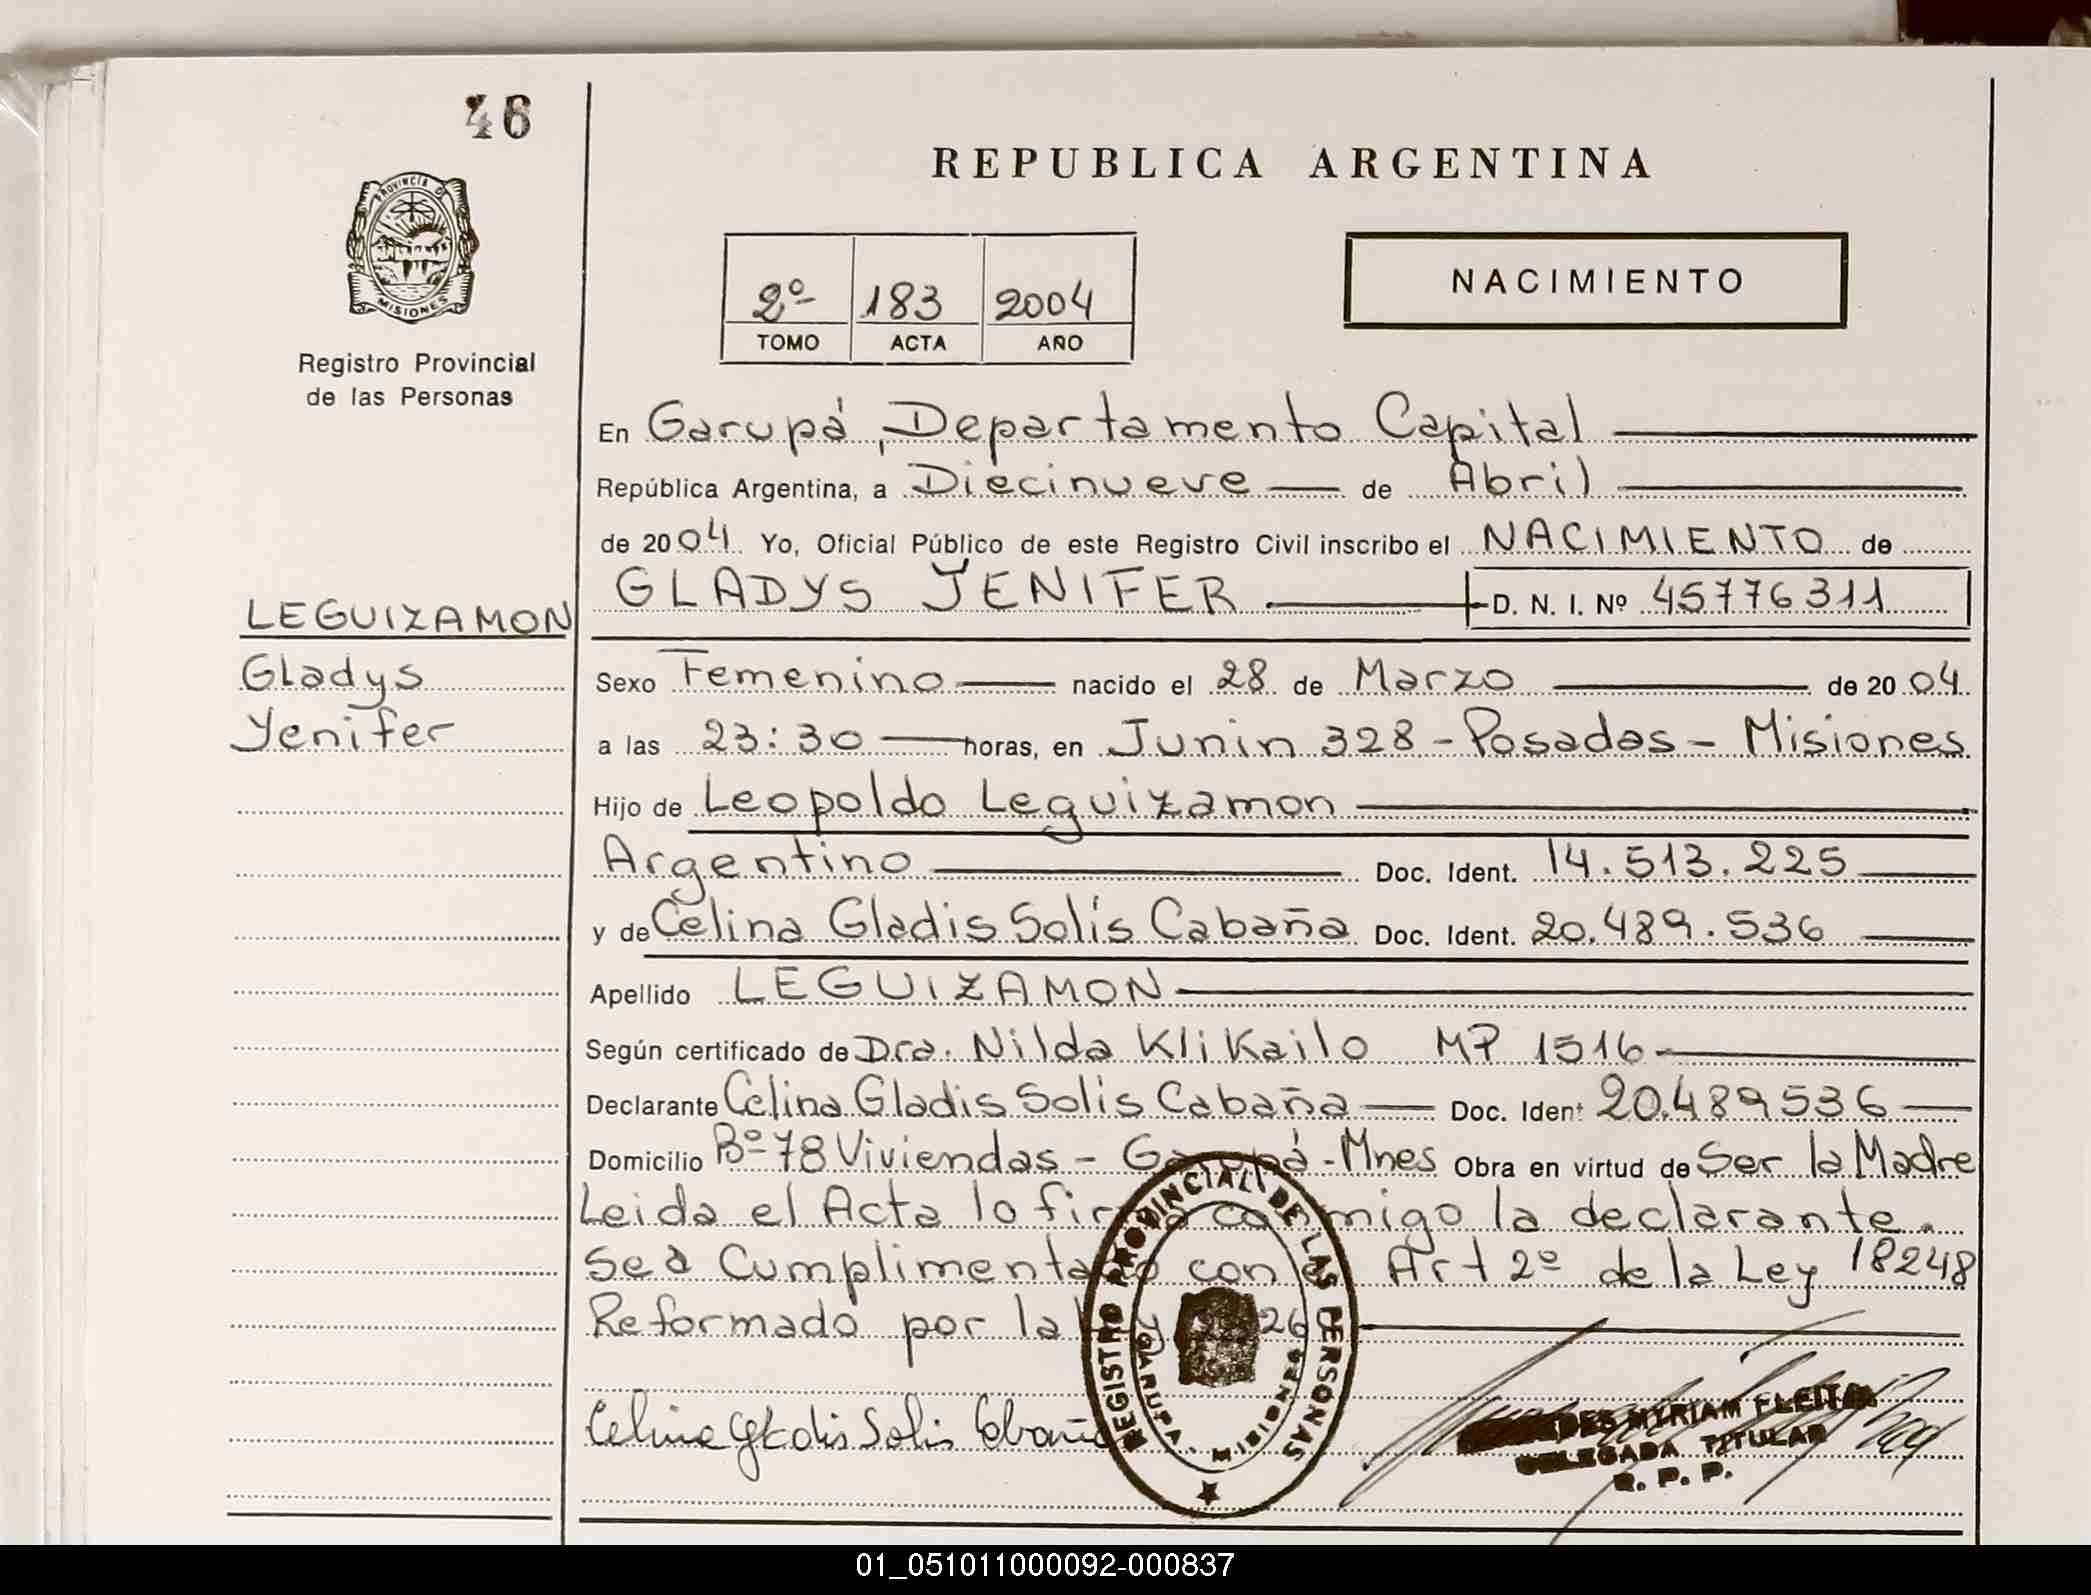 46
REPUBLICA ARGENTINA
PROVINCIA D
MISIONES
Registro Provincial
de las Personas
2º 183 2004
TOMO ACTA AÑO
NACIMIENTO
En Garupá, Departamento Capital
República Argentina, a Diecinueve de Abril
de 2004 Yo, Oficial Público de este Registro Civil inscribo el NACIMIENTO de
GLADYS YENIFER D. N. I. Nº 45776311
LEGUIZAMON
Gladys
Yenifer
Sexo Femenino nacido el 28 de Marzo de 2004
a las 23:30 horas, en Junin 328 - Posadas - Misiones
Hijo de Leopoldo Leguizamon
Argentino Doc. Ident. 14.513.225
y de Celina Gladis Solís Cabaña Doc. Ident. 20.489.536
Apellido LEGUIZAMON
Según certificado de Dra. Nilda Klikailo MP 1516
Declarante Celina Gladis Solis Cabaña Doc. Ident 20.489536
Domicilio Bº 78 Viviendas - Garupá - Mnes Obra en virtud de Ser la Madre
Leida el Acta lo firma conmigo la declarante.
Sea Cumplimentado con el Art 2º de la Ley 18248
Reformado por la 26
REGISTRO PROVINCIAL DE LAS PERSONAS
GARUPA
Celina Gladis Solis Cabaña
MYRIAM FLEITA
DELEGADA TITULAR
R. P. P.
01_051011000092-000837